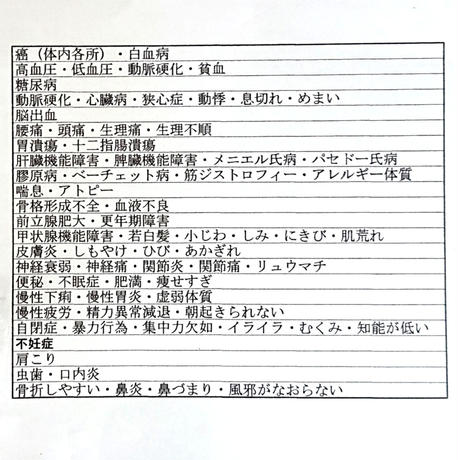 癌（体内各所）・白血病
高血圧・低血圧・動脈硬化・貧血
糖尿病
動脈硬化・心臓病・狭心症・動悸・息切れ・めまい
脳出血
腰痛・頭痛・生理痛・生理不順
胃潰瘍・十二指腸潰瘍
肝臓機能障害・脾臓機能障害・メニエル氏病・バセドー氏病
膠原病・ベーチェット病・筋ジストロフィー・アレルギー体質
喘息・アトピー
骨格形成不全・血液不良
前立腺肥大・更年期障害
甲状腺機能障害・若白髪・小じわ・しみ・にきび・肌荒れ
皮膚炎・しもやけ・ひび・あかぎれ
神経衰弱・神経痛・関節炎・関節痛・リュウマチ
便秘・不眠症・肥満・痩せすぎ
慢性下痢・慢性胃炎・虚弱体質
慢性疲労・精力異常減退・朝起きられない
自閉症・暴力行為・集中力欠如・イライラ・むくみ・知能が低い
不妊症
肩こり
虫歯・口内炎
骨折しやすい・鼻炎・鼻づまり・風邪がなおらない